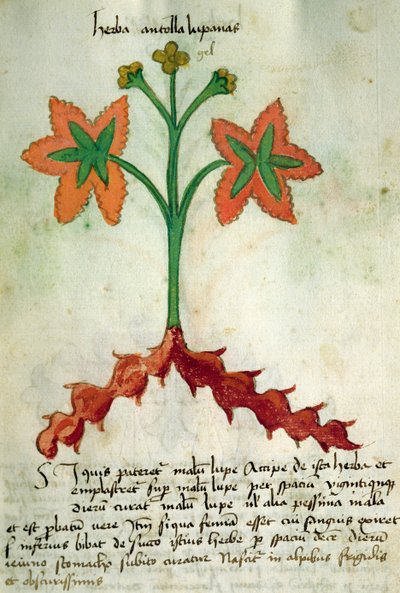 herba antolla lupanas
gel
Si quis pateret malū lupe Accipe de ista herba et
emplastret sup malū lupe per spaciū viginti quinqʒ
dierū curat malū lupe ul alia pessima mala
et est pbatū vere Itm si qua femīa esset cui sanguis exiret
inferius bibat de succo istius herbe p spaciū dece dierū
ieiuno stomacho subito curatur Nascit in alpibus frigidis
et obscurissimis